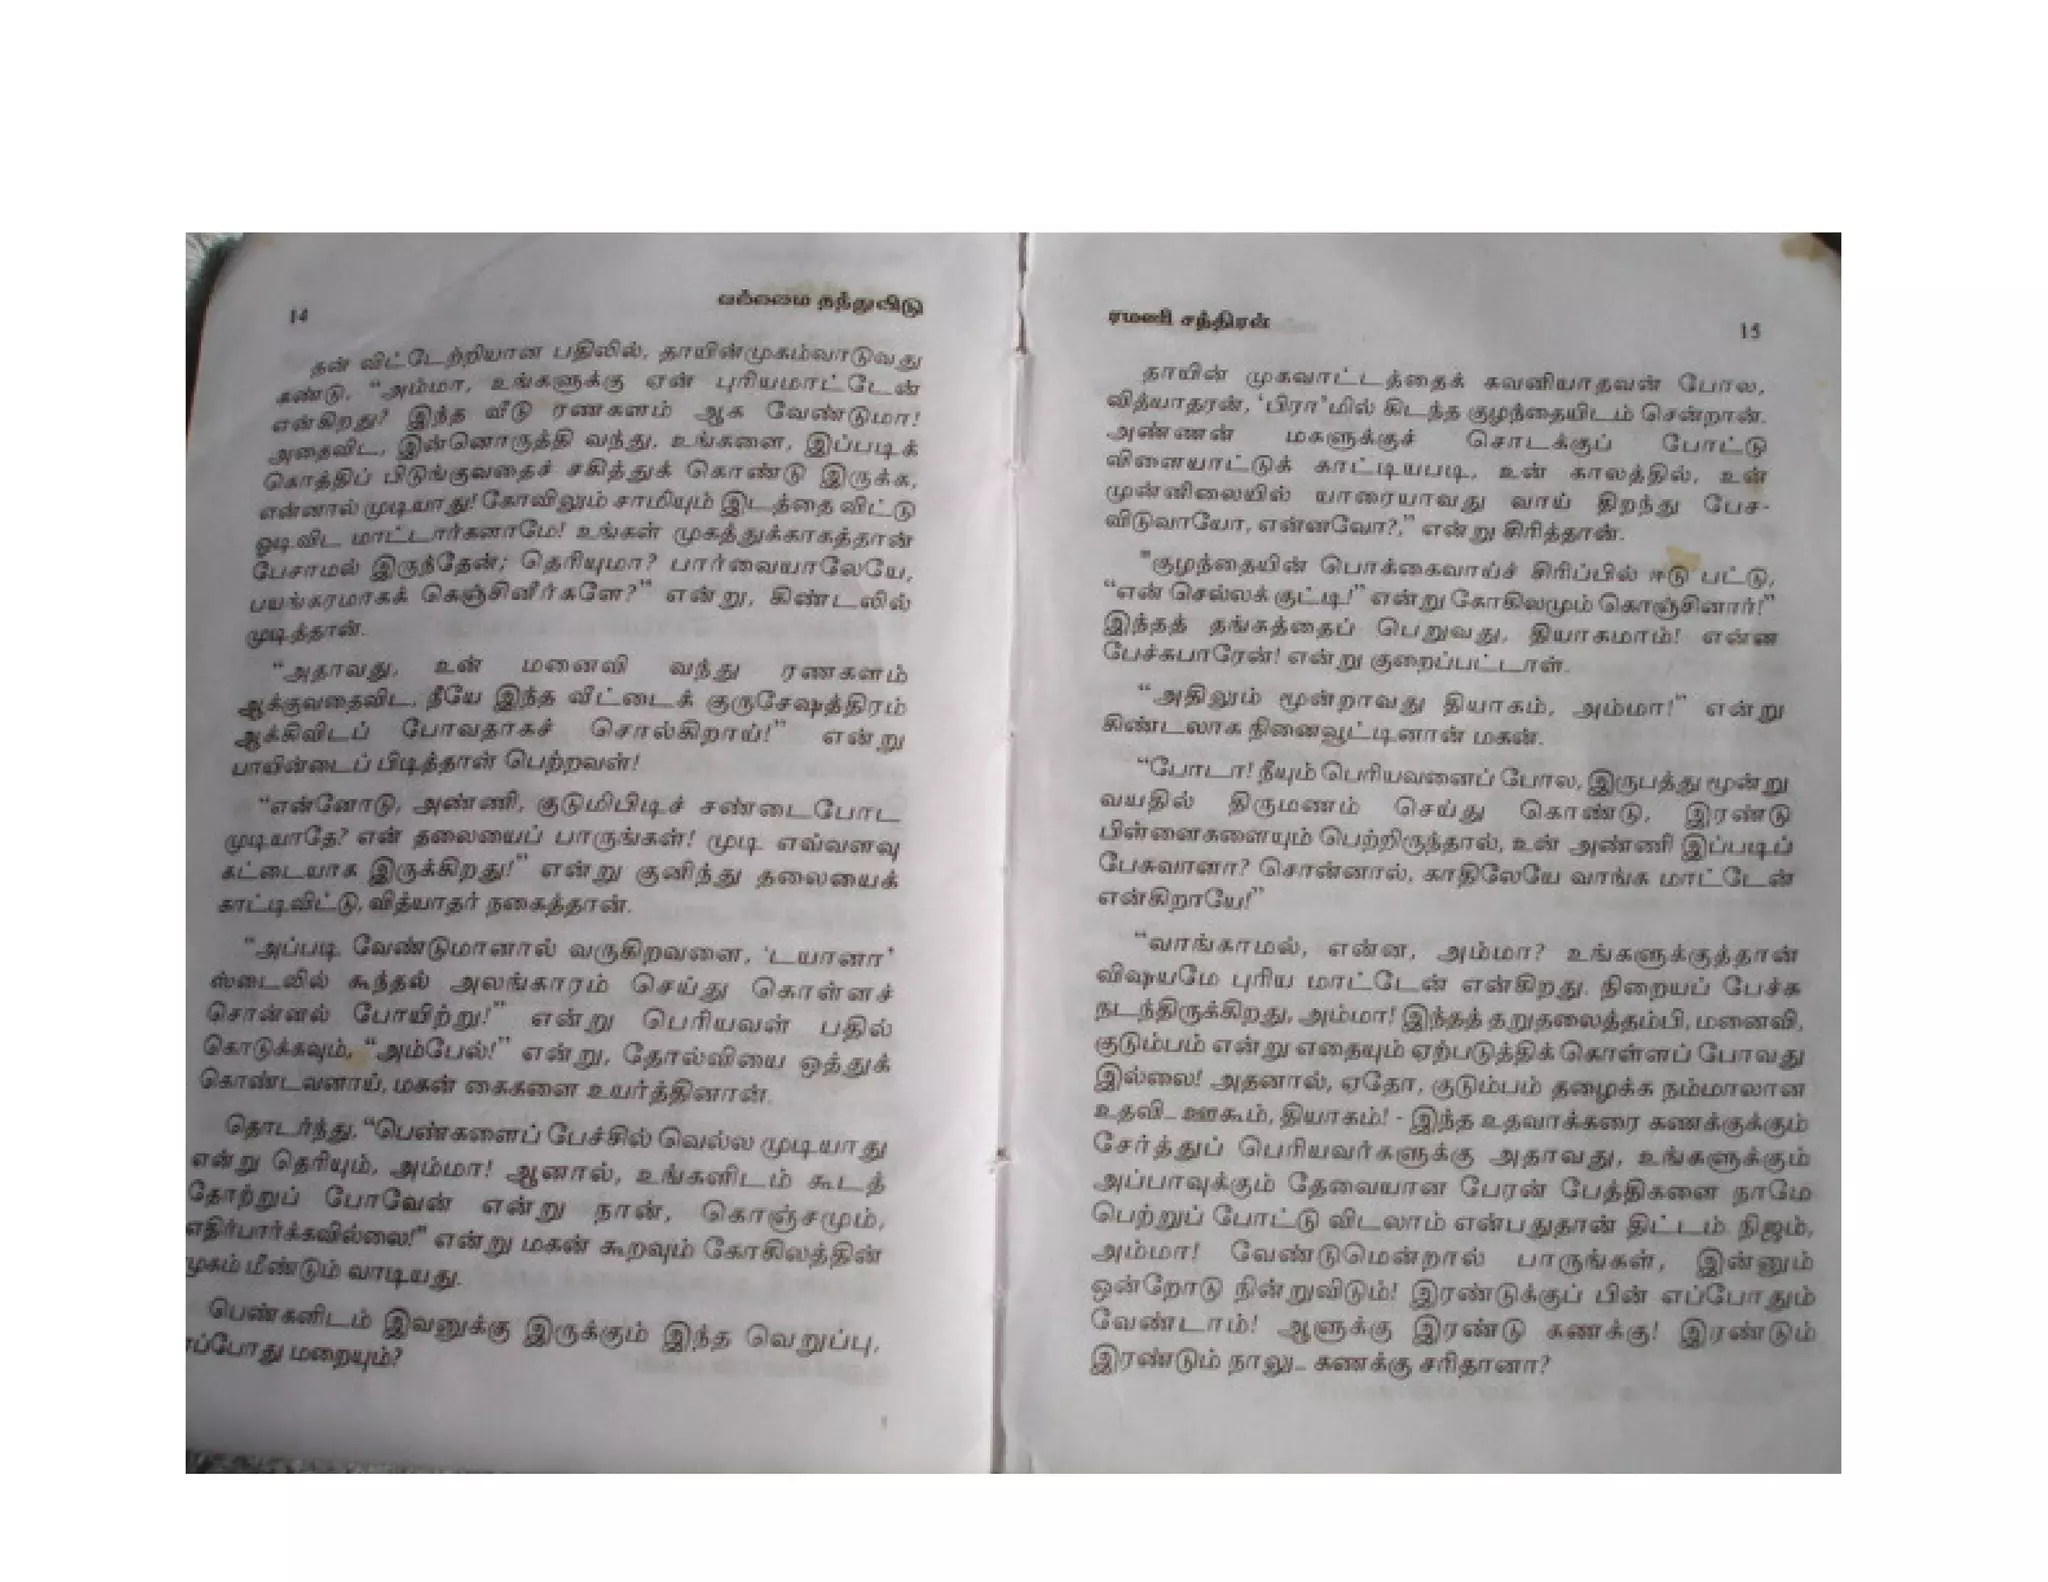 14
வல்லமை தந்துவிடு
தன் விட்டேற்றியான பதிலில், தாயின்முகம்வாடுவது
கண்டு, “அம்மா, உங்களுக்கு ஏன் புரியமாட்டேன்
என்கிறது? இந்த வீடு ரணகளம் ஆக வேண்டுமா!
அதைவிட, இன்னொருத்தி வந்து, உங்களை, இப்படிக்
கொத்திப் பிடுங்குவதைச் சகித்துக் கொண்டு இருக்க,
என்னால் முடியாது! கோவிலும் சாமியும் இடத்தை விட்டு
ஓடிவிட மாட்டார்களாமே! உங்கள் முகத்துக்காகத்தான்
பேசாமல் இருந்தேன்; தெரியுமா? பார்வையாலேயே,
பயங்கரமாகக் கெஞ்சினீர்களே?” என்று, கிண்டலில்
முடித்தான்.
“அதாவது, உன் மனைவி வந்து ரணகளம்
ஆக்குவதைவிட, நீயே இந்த வீட்டைக் குருசேஷத்திரம்
ஆக்கிவிடப் போவதாகச் சொல்கிறாய்!” என்று
பாயின்டைப் பிடித்தாள் பெற்றவள்!
“என்னோடு, அண்ணி, குடுமிபிடிச் சண்டைபோட
முடியாதே? என் தலையைப் பாருங்கள்! முடி எவ்வளவு
கட்டையாக இருக்கிறது!” என்று குனிந்து தலையைக்
காட்டிவிட்டு, வித்யாதர் நகைத்தான்.
“அப்படி வேண்டுமானால் வருகிறவளை, ‘டயானா’
ஸ்டைலில் கூந்தல் அலங்காரம் செய்து கொள்ளச்
சொன்னல் போயிற்று!” என்று பெரியவள் பதில்
கொடுக்கவும், “அம்பேல்!” என்று, தோல்வியை ஒத்துக்
கொண்டவனாய், மகன் கைகளை உயர்த்தினான்.
தொடர்ந்து, “பெண்களைப் பேச்சில் வெல்ல முடியாது
என்று தெரியும், அம்மா! ஆனால், உங்களிடம் கூடத்
தோற்றுப் போவேன் என்று நான், கொஞ்சமும்,
எதிர்பார்க்கவில்லை!” என்று மகன் கூறவும் கோகிலத்தின்
முகம் மீண்டும் வாடியது.
பெண்களிடம் இவனுக்கு இருக்கும் இந்த வெறுப்பு,
எப்போது மறையும்?
ரமணி சந்திரன்
15
தாயின் முகவாட்டத்தைக் கவனியாதவன் போல,
வித்யாதரன், ‘பிரா’மில் கிடந்த குழந்தையிடம் சென்றான்.
அண்ணன் மகளுக்குச் சொடக்குப் போட்டு
விளையாட்டுக் காட்டியபடி, உன் காலத்தில், உன்
முன்னிலையில் யாரையாவது வாய் திறந்து பேச-
விடுவாயோ, என்னவோ?,” என்று சிரித்தான்.
"குழந்தையின் பொக்கைவாய்ச் சிரிப்பில் ஈடு பட்டு,
“என் செல்லக் குட்டி!” என்று கோகிலமும் கொஞ்சினார்!”
இந்தத் தங்கத்தைப் பெறுவது, தியாகமாம்! என்ன
பேச்சுபாரேன்! என்று குறைப்பட்டாள்.
“அதிலும் மூன்றாவது தியாகம், அம்மா!” என்று
கிண்டலாக நினைவூட்டினான் மகன்.
“போடா! நீயும் பெரியவனைப் போல, இருபத்து மூன்று
வயதில் திருமணம் செய்து கொண்டு, இரண்டு
பிள்ளைகளையும் பெற்றிருந்தால், உன் அண்ணி இப்படிப்
பேசுவானா? சொன்னால், காதிலேயே வாங்க மாட்டேன்
என்கிறாயே!”
“வாங்காமல், என்ன, அம்மா? உங்களுக்குத்தான்
விஷயமே புரிய மாட்டேன் என்கிறது. நிறையப் பேச்சு
நடந்திருக்கிறது, அம்மா! இந்தத் தறுதலைத்தம்பி, மனைவி,
குடும்பம் என்று எதையும் ஏற்படுத்திக் கொள்ளப் போவது
இல்லை! அதனால், ஏதோ, குடும்பம் தழைக்க நம்மாலான
உதவி_ ஊகூம், தியாகம்! - இந்த உதவாக்கரை கணக்குக்கும்
சேர்த்துப் பெரியவர்களுக்கு அதாவது, உங்களுக்கும்
அப்பாவுக்கும் தேவையான பேரன் பேத்திகளை நாமே
பெற்றுப் போட்டு விடலாம் என்பதுதான் திட்டம். நிஜம்,
அம்மா! வேண்டுமென்றால் பாருங்கள், இன்னும்
ஒன்றோடு நின்றுவிடும்! இரண்டுக்குப் பின் எப்போதும்
வேண்டாம்! ஆளுக்கு இரண்டு கணக்கு! இரண்டும்
இரண்டும் நாலு_ கணக்கு சரிதானா?